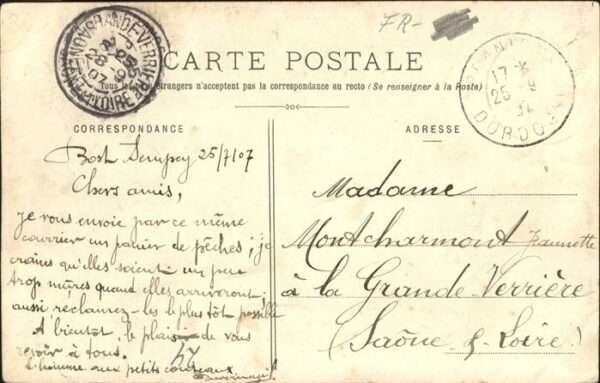 FR-
CARTE POSTALE
Tous les pays étrangers n'acceptent pas la correspondance au recto (Se renseigner à la Poste)
CORRESPONDANCE
ADRESSE
25/7/07
Chers amis,
je vous envoie par ce même
courrier un panier de pêches; je
crains qu'elles soient un peu
trop mûres quand elles arriveront;
aussi réclamez-les le plus tôt possible
A bientôt, le plaisir de vous
revoir à tous.
aux petits
Madame
Montcharmont Jeannette
à la Grande Verrière
(Saône & Loire)
LA GRANDE-VERRIERE
SAONE-ET-LOIRE
25
28
07
17
25
DORDOGNE